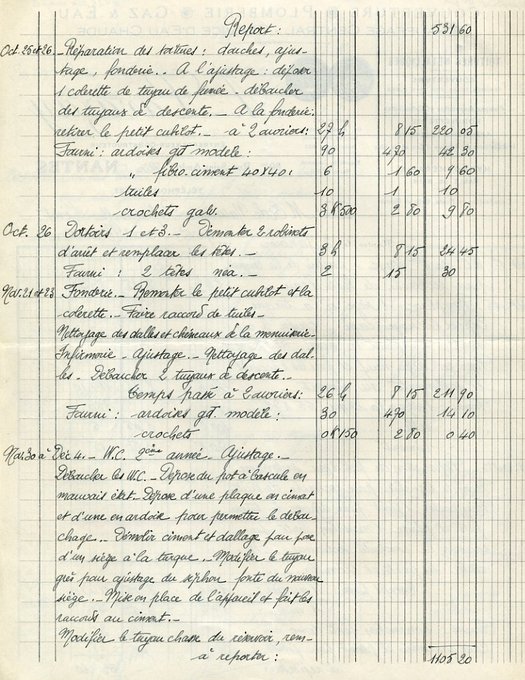 Report : 531 60
Oct. 25 et 26 - Réparation des toitures : douches, ajus-
tage, fonderie.. A l'ajustage : déposer
1 colerette de tuyau de fumée. débaucher
des tuyaux de descente. - A la fonderie :
retirer le petit cubilot. - à 2 ouvriers : 27 h 8 15 220 05
Fourni : ardoises gd modèle : 90 470 42 30
" fibro. ciment 40 x 40 : 6 1 60 9 60
tuiles 10 1 10
crochets galv. 3 K 500 2 80 9 80
Oct. 26 Dortoirs 1 et 3. - Démonter 2 robinets
d'arêt et remplacer les têtes. - 3 h 8 15 24 45
Fourni : 2 têtes néa. - 2 15 30
Nov. 21 et 23 Fonderie. - Remonter le petit cubilot et la
colerette. - Faire raccord de tuiles -
Nettoyage des dalles et chéneaux à la menuiserie -
Infirmerie - Ajustage. - Nettoyage des dal-
les - Débaucher 2 tuyaux de descente. -
Temps passé à 2 ouvriers : 26 h 8 15 211 90
Fourni : ardoises gd. modèle : 30 470 14 10
crochets 0 K 150 2 80 0 40
Nov. 30 à Déc 4. - W.C. 2ème année Ajustage. -
Débaucher les W.C. - Dépose du pot à bascule en
mauvais état - Dépose d'une plaque en cimat
et d'une en ardoise pour permettre le débau-
chage.. Démolir ciment et dallage pour pose
d'un siège à la turque. - Modifier le tuyau
grès pour ajustage du siphon fonte du nouveau
siège. - Mise en place de l'appareil et fait les
raccords au ciment. -
Modifier le tuyau chasse du réservoir, rem-
à reporter : 1105 20